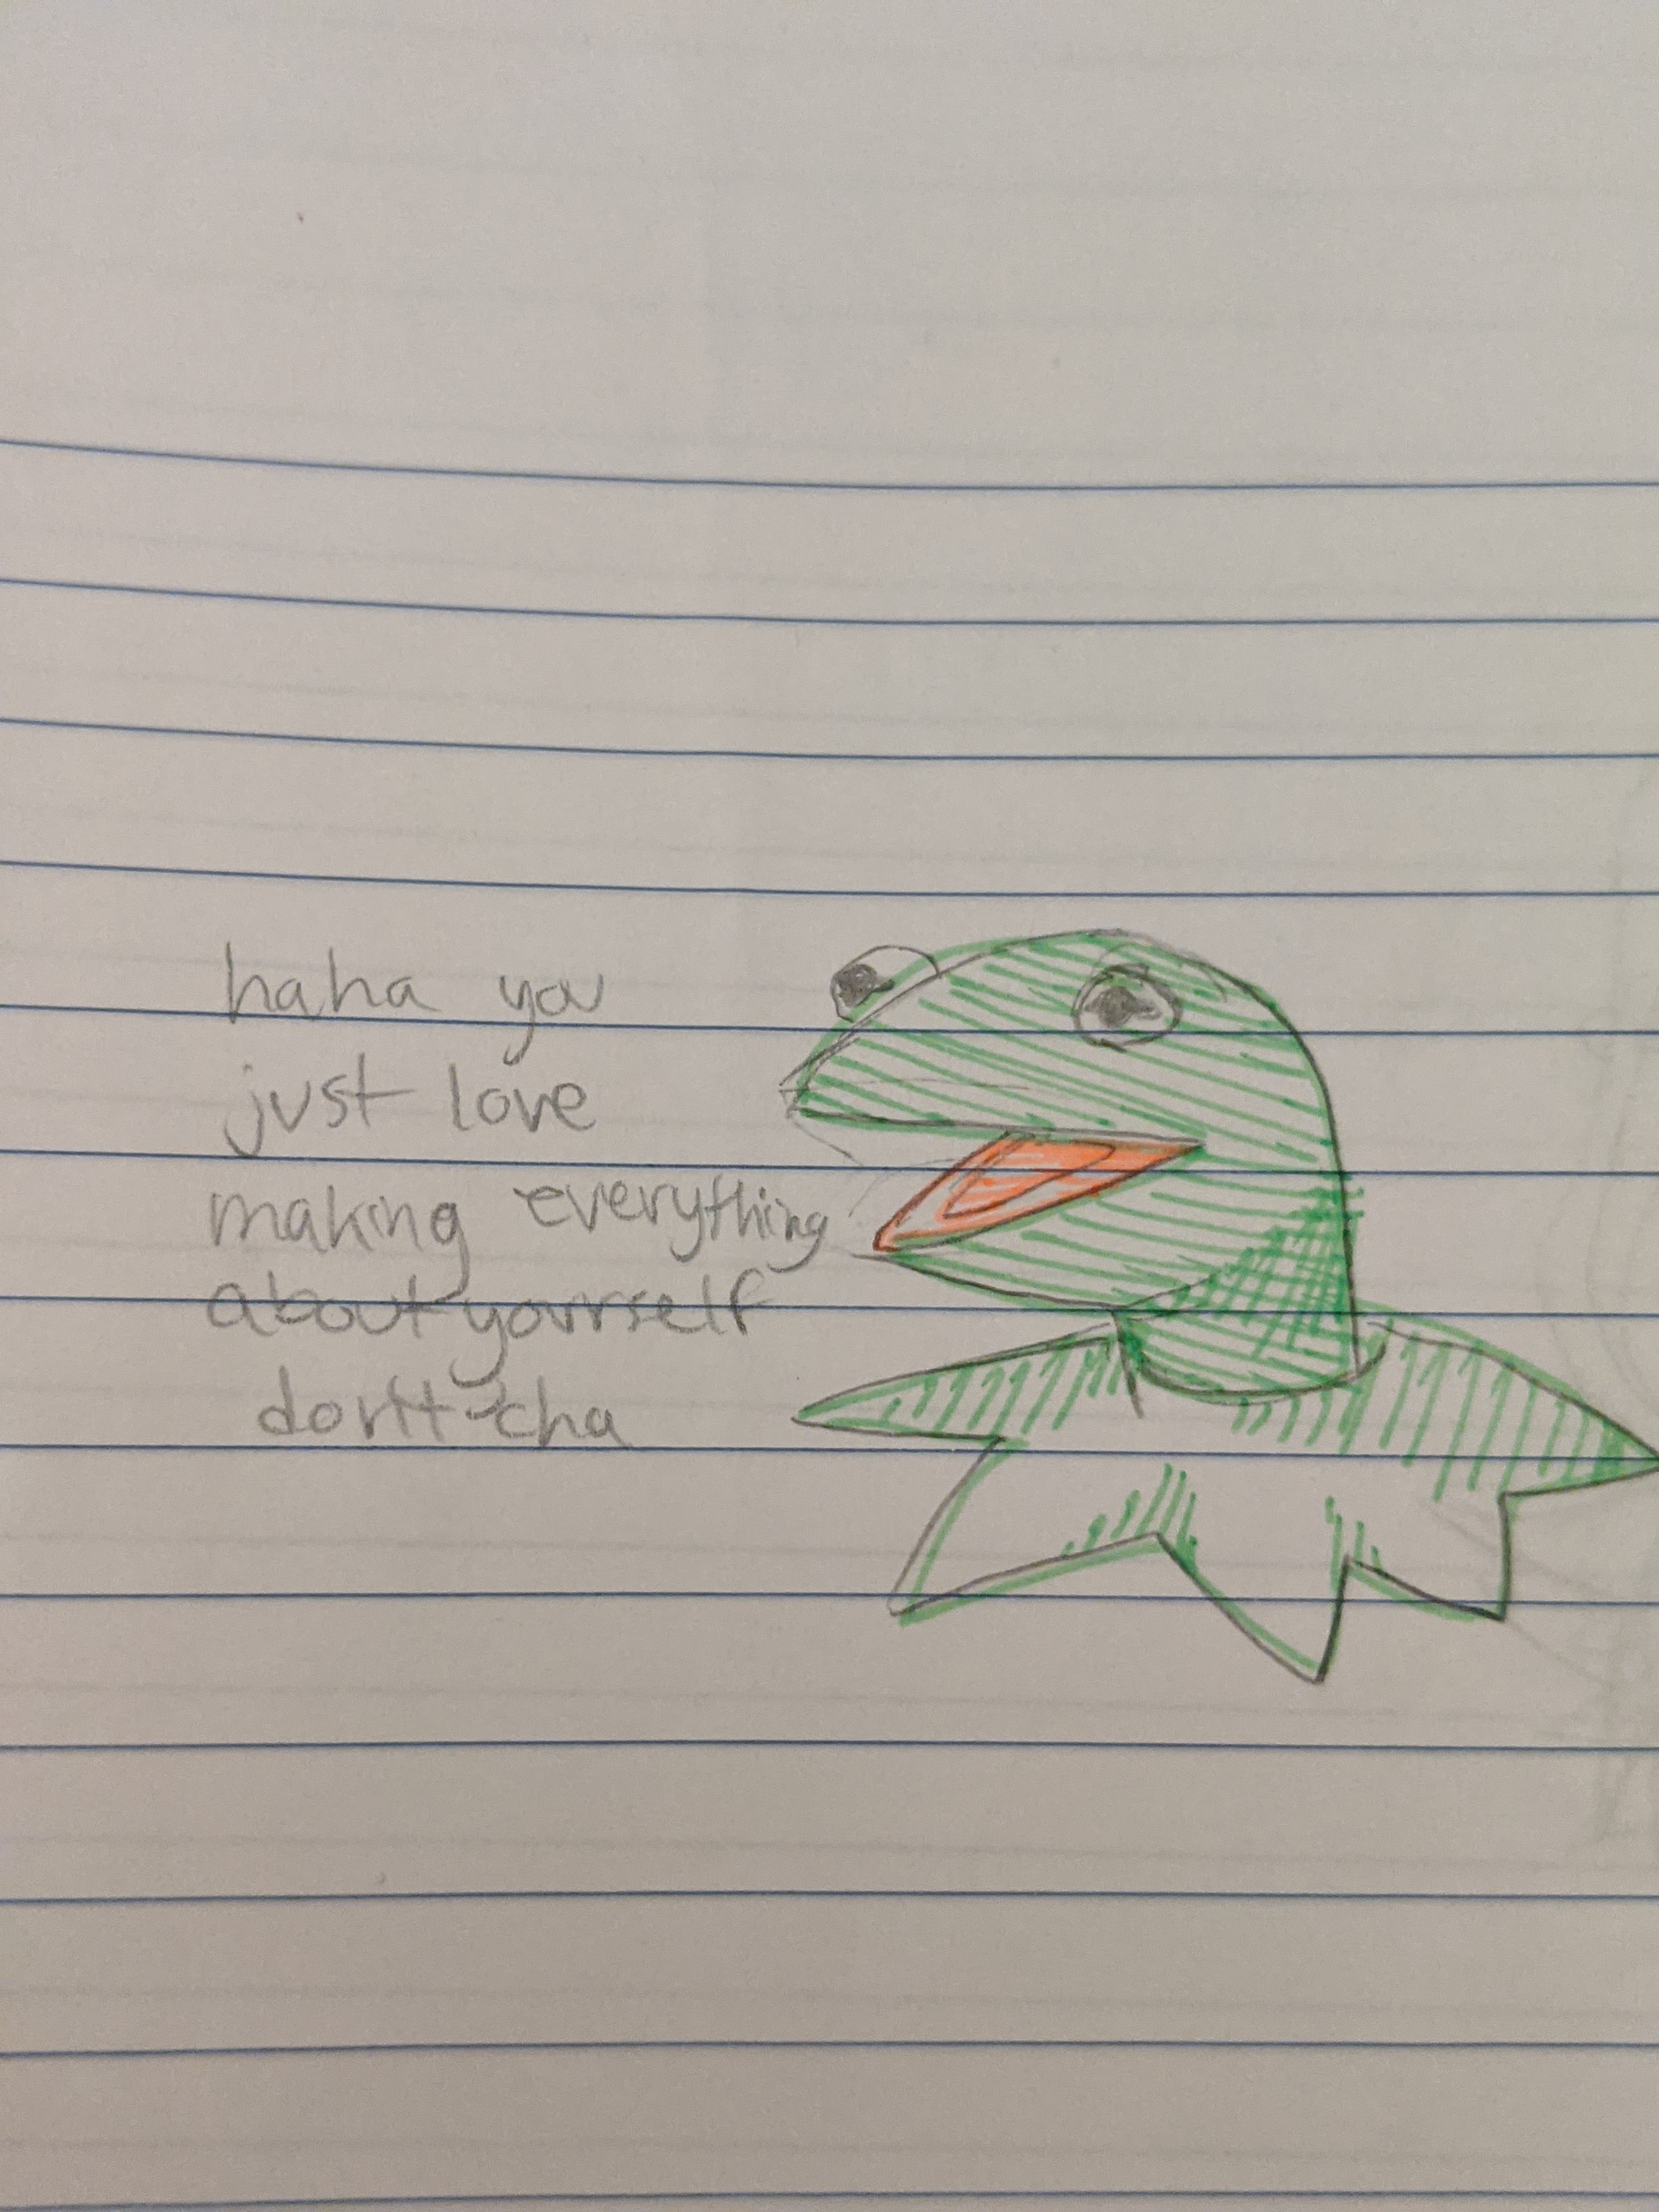 haha you
just love
making everything
about yourself
don't-cha